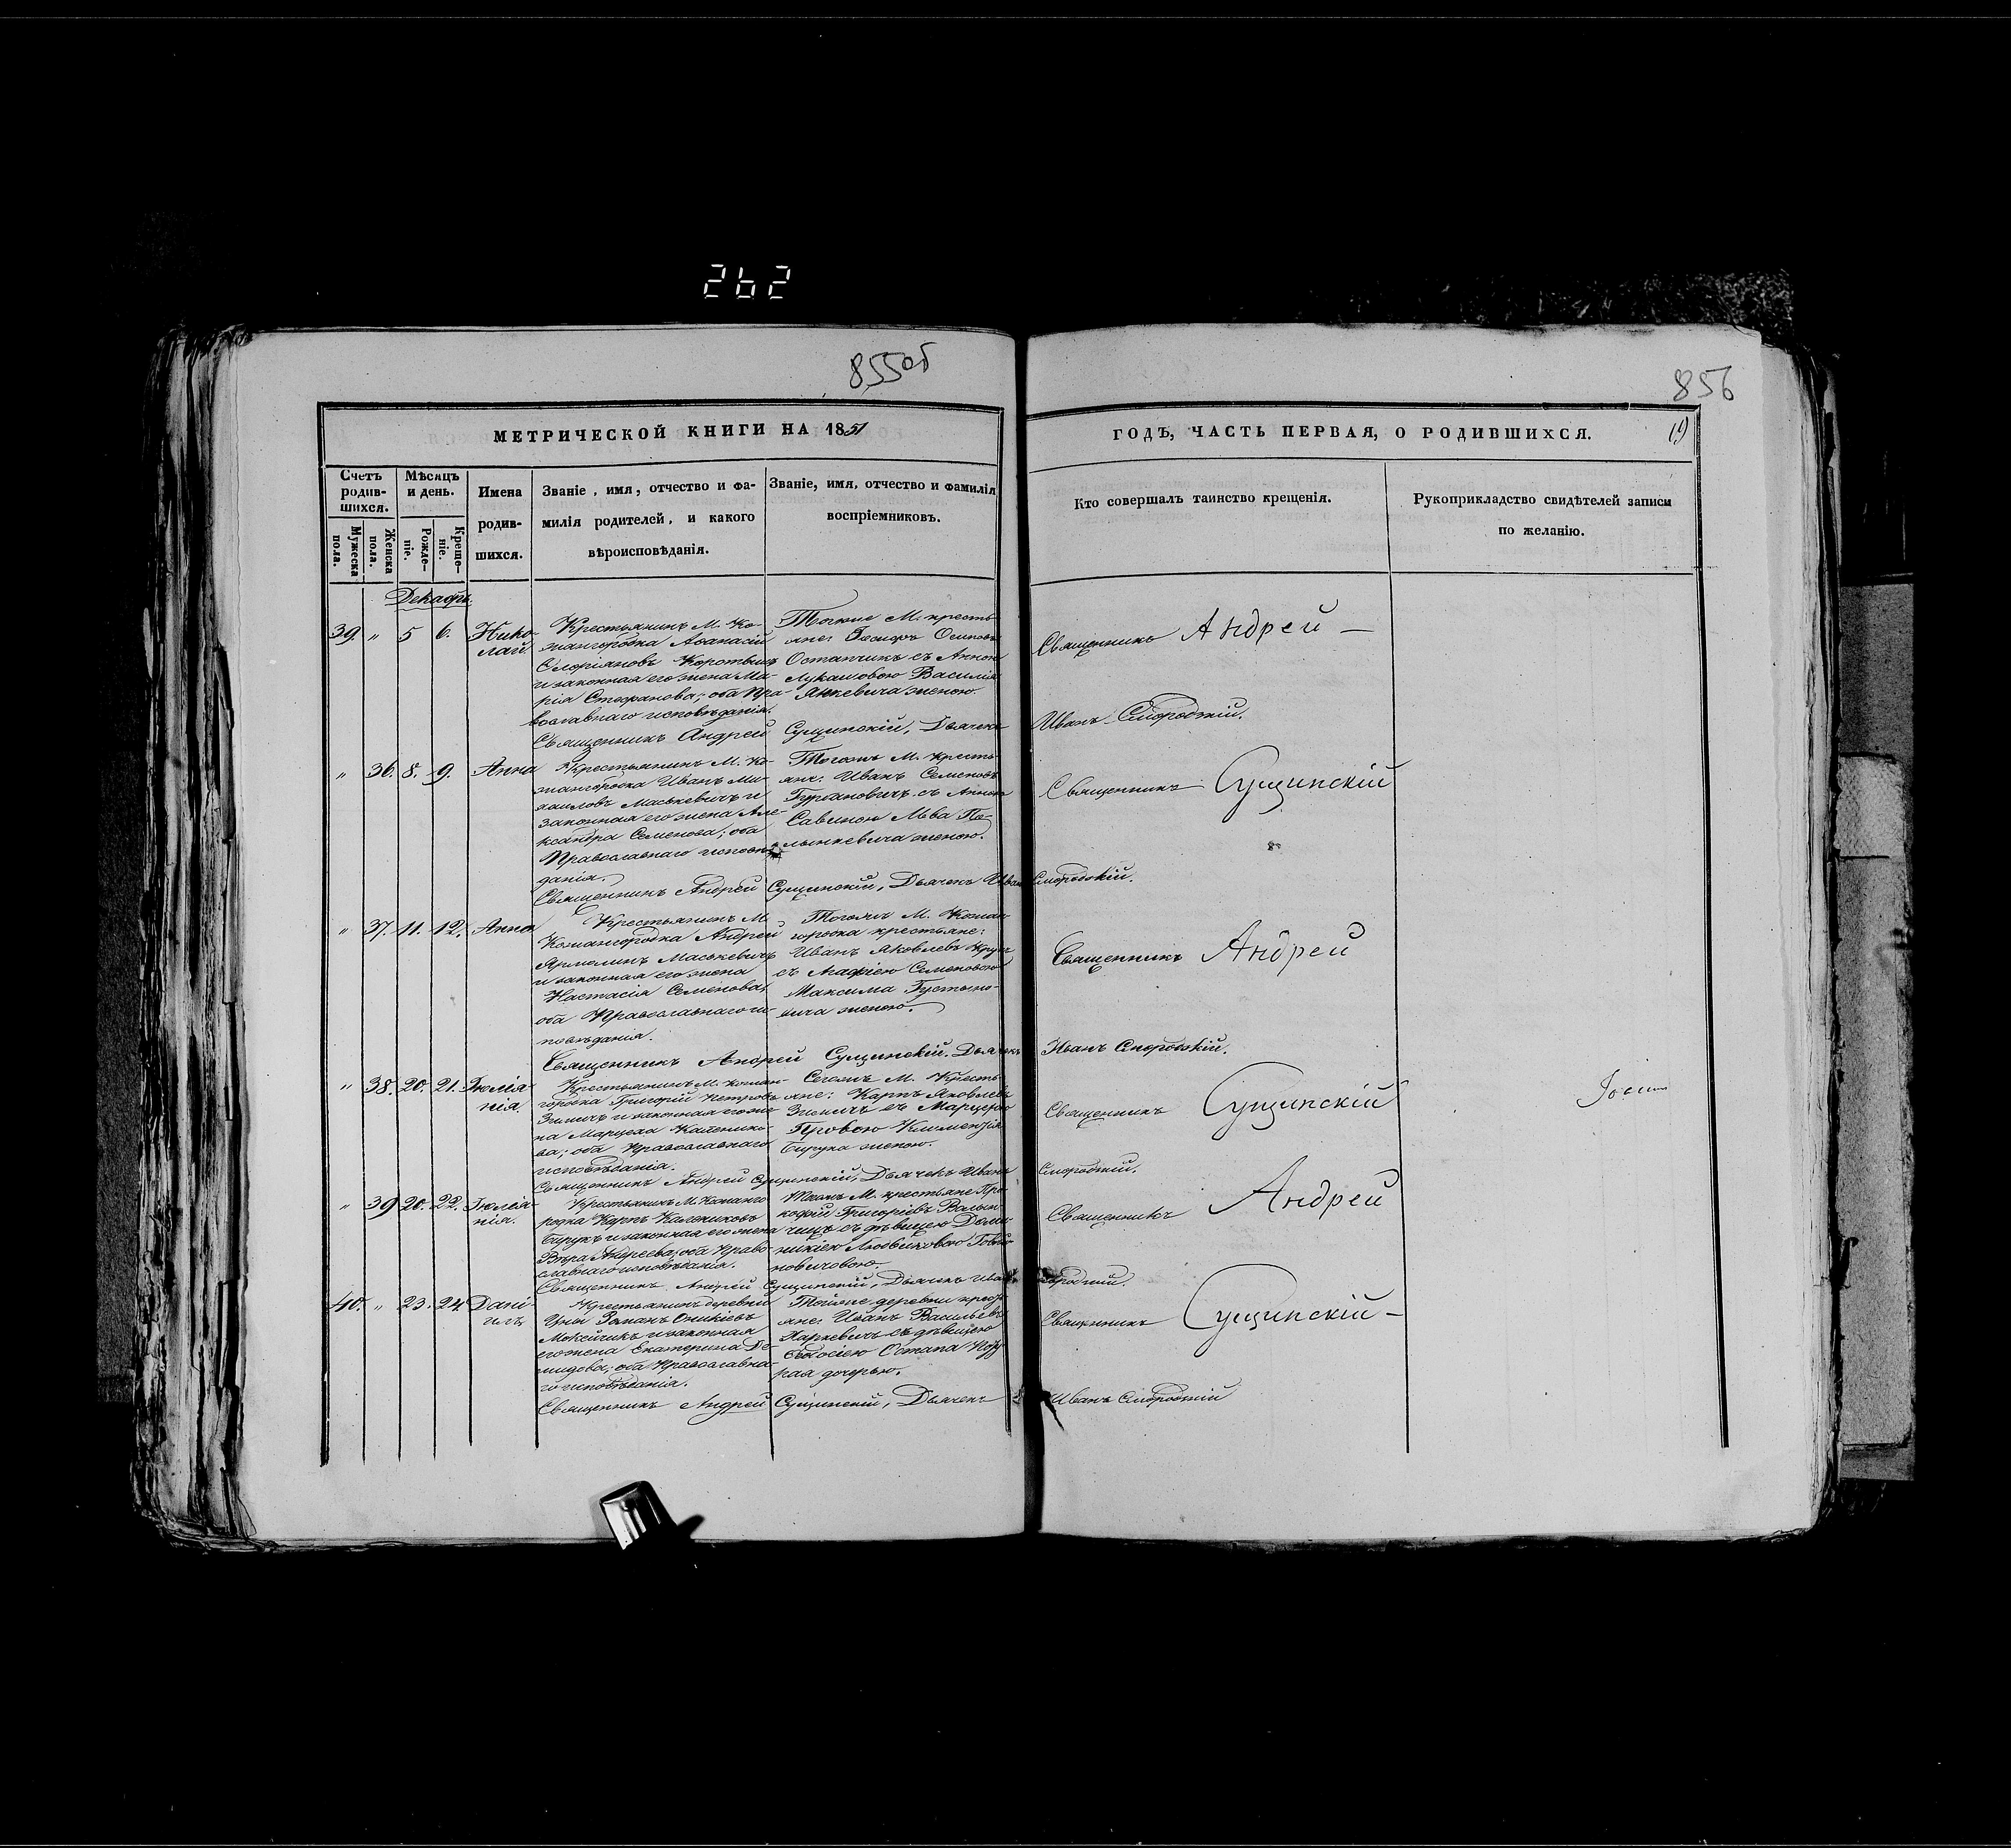 262
855об
856
МЕТРИЧЕСКОЙ КНИГИ НА 1851
ГОДЪ, ЧАСТЬ ПЕРВАЯ, О РОДИВШИХСЯ.
19
Счетъ родившихся.
Мужеска пола.
Женска пола.
Мѣсяцъ и день.
Рожденіе.
Крещеніе.
Имена родившихся.
Званіе, имя, отчество и фамилія родителей, и какого вѣроисповѣданія.
Званіе, имя, отчество и фамилія воспріемниковъ.
Кто совершалъ таинство крещенія.
Рукоприкладство свидѣтелей записи по желанію.
Декабрь
39. " 5 6. Николай
Крестьянинъ М. Ко-
жангородка Аѳанасій
и законная его жена Ма-
рія Стефанова; оба Пра-
вославнаго исповѣданія.
крестьяне: Осиповъ
Остапчикъ съ Анною
Лукашовою Василія
Янкевича женою.
Священникъ Андрей —
Священникъ Андрей Сущинскій, Дьячекъ Иванъ Смородскій.
" 36. 8. 9. Анна
Крестьянинъ М. Ко-
жангородка Иванъ Ми-
хаиловъ Маськевичъ и
законная его жена Але-
ксандра Семенова; оба
Православнаго исповѣ-
данія.
Тогожъ М. кресть-
яне: Иванъ Семеновъ
Гурбановичъ съ Анною
Савиною Льва По-
лынкевича женою.
Священникъ Сущинскій
Священникъ Андрей Сущинскій, Дьячекъ Иванъ Смородскій.
" 37. 11. 12. Анна
Крестьянинъ М.
Кожангородка Андрей
Ярмолинъ Маськевичъ
и законная его жена
Настасія Семенова;
оба Православнаго ис-
повѣданія.
Тогожъ М. Кожан-
городка крестьяне:
Иванъ Яковлевъ
съ Агафіею Семеновою
Максима
женою.
Священникъ Андрей
Священникъ Андрей Сущинскій. Дьячекъ Иванъ Смородскій.
" 38. 20. 21. Іюліанія.
Крестьянинъ М. Кожан-
городка Григорій Петровъ
Зиничъ и законная его же-
на
ва; оба Православнаго
исповѣданія.
Сегожъ М. Кресть-
яне: Карпъ Яковлевъ
Зиничъ съ
Бирука женою.
Священникъ Сущинскій
Священникъ Андрей Сущинскій, Дьячекъ Иванъ Смородскій.
" 39 20. 22. Іюліанія.
Крестьянинъ М. Кожанго-
родка Карпъ
Бирукъ и законная его жена
Вѣра Андреева; оба Право-
славнаго исповѣданія.
Тогожъ М. крестьяне Про-
кофій Григоріевъ Валын-
чицъ съ дѣвицею Доми-
никіею
Священникъ Андрей
Священникъ Андрей Сущинскій, Дьячекъ Иванъ Смородскій.
40. " 23. 24. Даніилъ
Крестьянинъ деревни
Цны Романъ
Мокейчикъ и законная
его жена Екатерина Де-
мидова; оба Православна-
го исповѣданія.
Тойже деревни кресть-
яне: Иванъ Васильевъ
Харкевичъ съ дѣвицею
Ѳеодосіею Остапа
дочерью.
Священникъ Сущинскій —
Священникъ Андрей Сущинскій, Дьячекъ Иванъ Смородскій